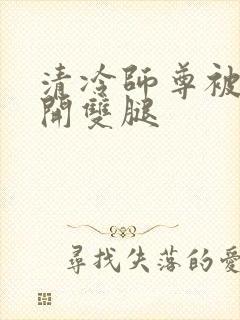 清冷師尊被
開雙腿
尋找失落的愛